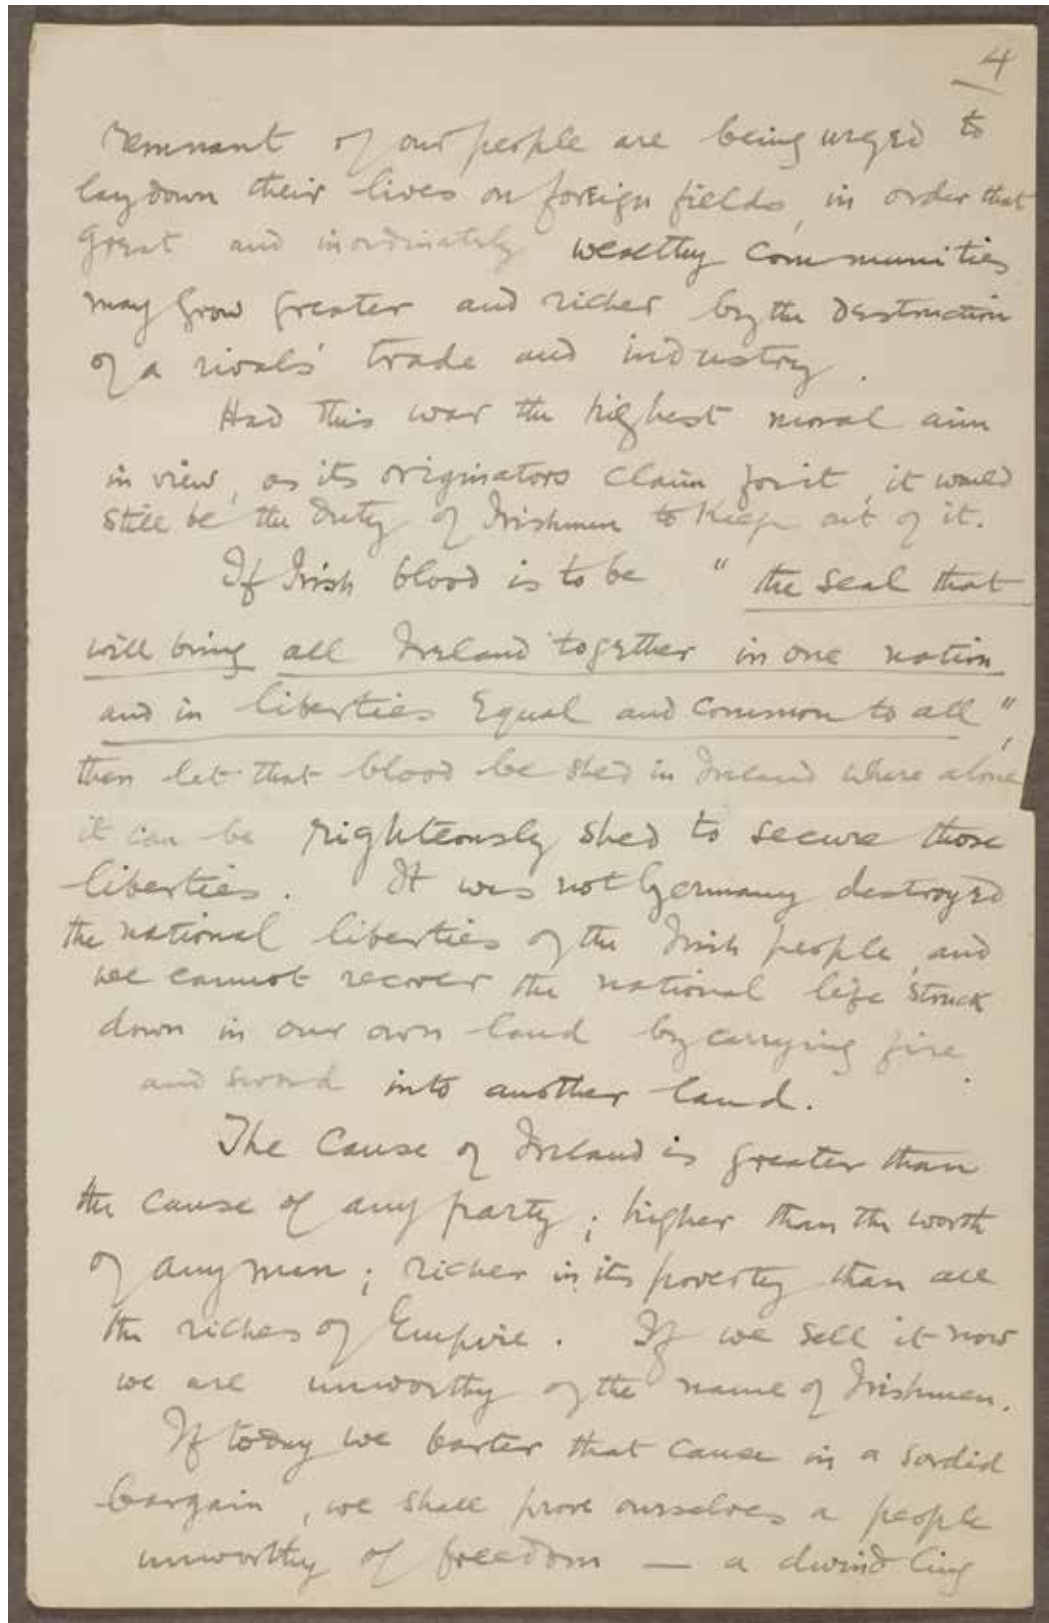 4
remnant of our people are being urged to
lay down their lives on foreign fields, in order that
great and inordinately wealthy communities
may grow greater and richer by the destruction
of a rival's trade and industry.
Had this war the highest moral aim
in view, as its originators claim for it, it would
still be the duty of Irishmen to keep out of it.
If Irish blood is to be "the seal that
will bring all Ireland together in one nation
and in liberties Equal and common to all",
then let that blood be shed in Ireland where alone
it can be righteously shed to secure those
liberties. It was not Germany destroyed
the national liberties of the Irish people, and
we cannot recover the national life struck
down in our own land by carrying fire
and sword into another land.
The Cause of Ireland is greater than
the cause of any party; higher than the worth
of any man; richer in its poverty than all
the riches of Empire. If we sell it now
we are unworthy of the name of Irishmen.
If today we barter that cause in a sordid
bargain, we shall prove ourselves a people
unworthy of freedom — a dwindling